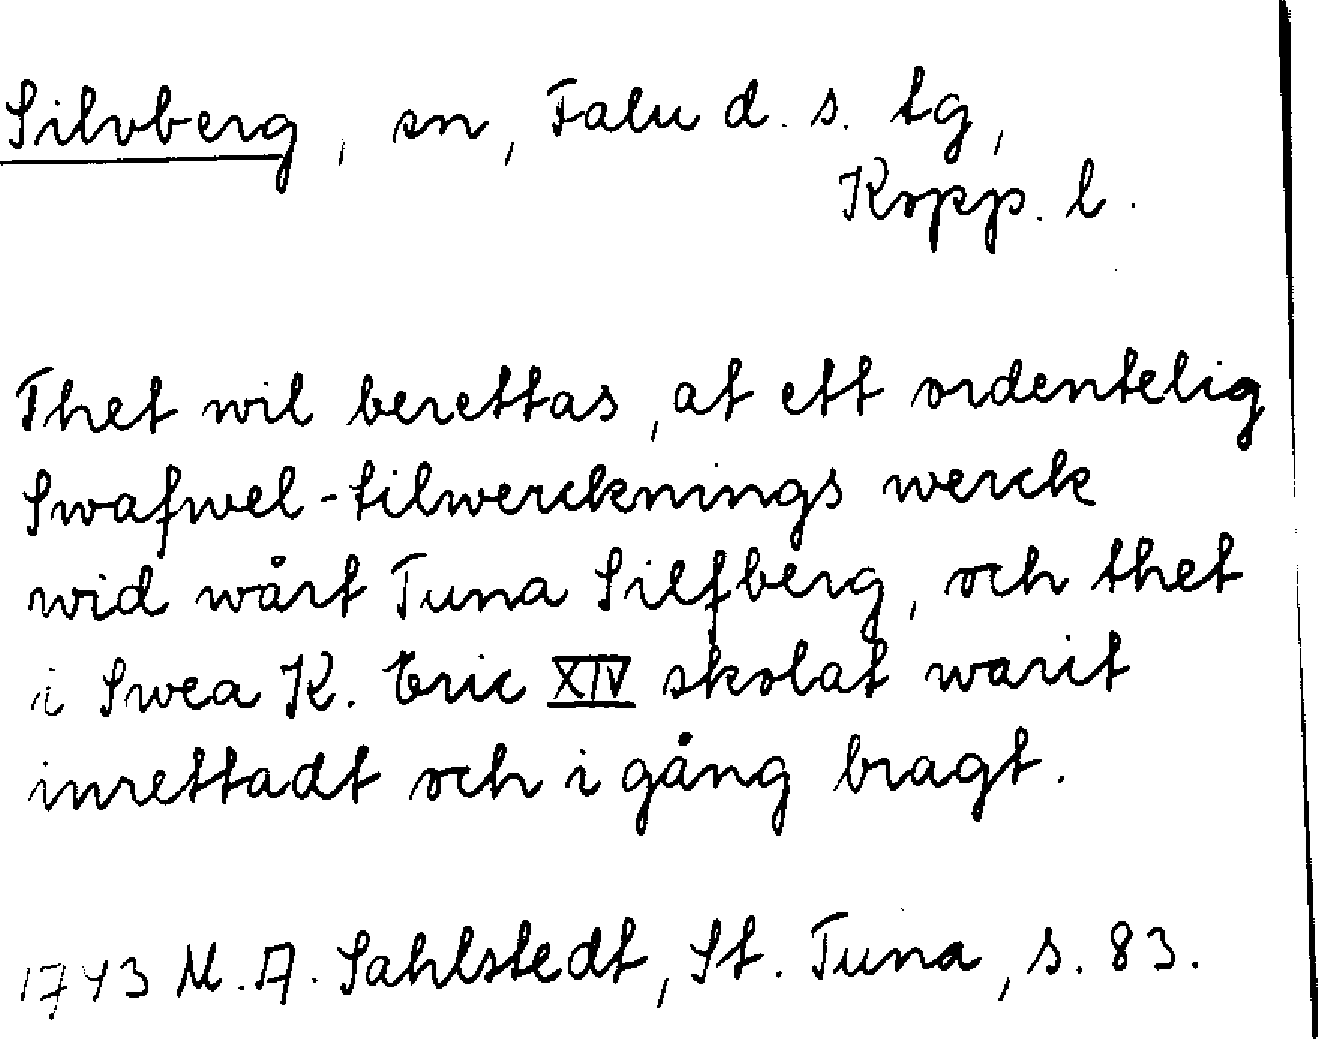 Silvberg, sn, Falu d. s. tg,
Kopp. l.
Thet wil berettas, at ett ordentelig
Swafwel-tilwercknings werck
wid wårt Tuna Silfberg, och thet
i Swea K. Eric XIV skolat warit
inrettadt och i gång bragt.
1743 M. A. Sahlstedt, St. Tuna, s. 83.